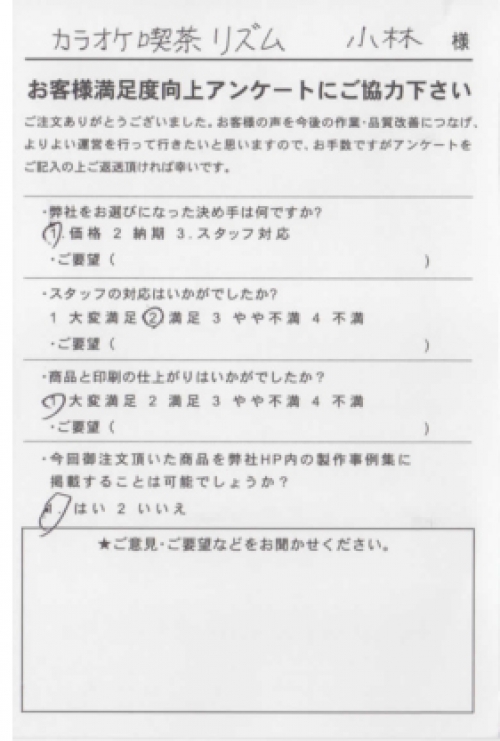 カラオケ喫茶 リズム 小林 様
お客様満足度向上アンケートにご協力下さい
ご注文ありがとうございました。お客様の声を今後の作業・品質改善につなげ、
よりよい運営を行って行きたいと思いますので、お手数ですがアンケートを
ご記入の上ご返送頂ければ幸いです。
・弊社をお選びになった決め手は何ですか?
1.価格 2 納期 3.スタッフ対応
・ご要望( )
・スタッフの対応はいかがでしたか?
1 大変満足 2 満足 3 やや不満 4 不満
・ご要望( )
・商品と印刷の仕上がりはいかがでしたか?
1 大変満足 2 満足 3 やや不満 4 不満
・ご要望( )
・今回御注文頂いた商品を弊社HP内の製作事例集に
掲載することは可能でしょうか?
1 はい 2 いいえ
★ご意見・ご要望などをお聞かせください。